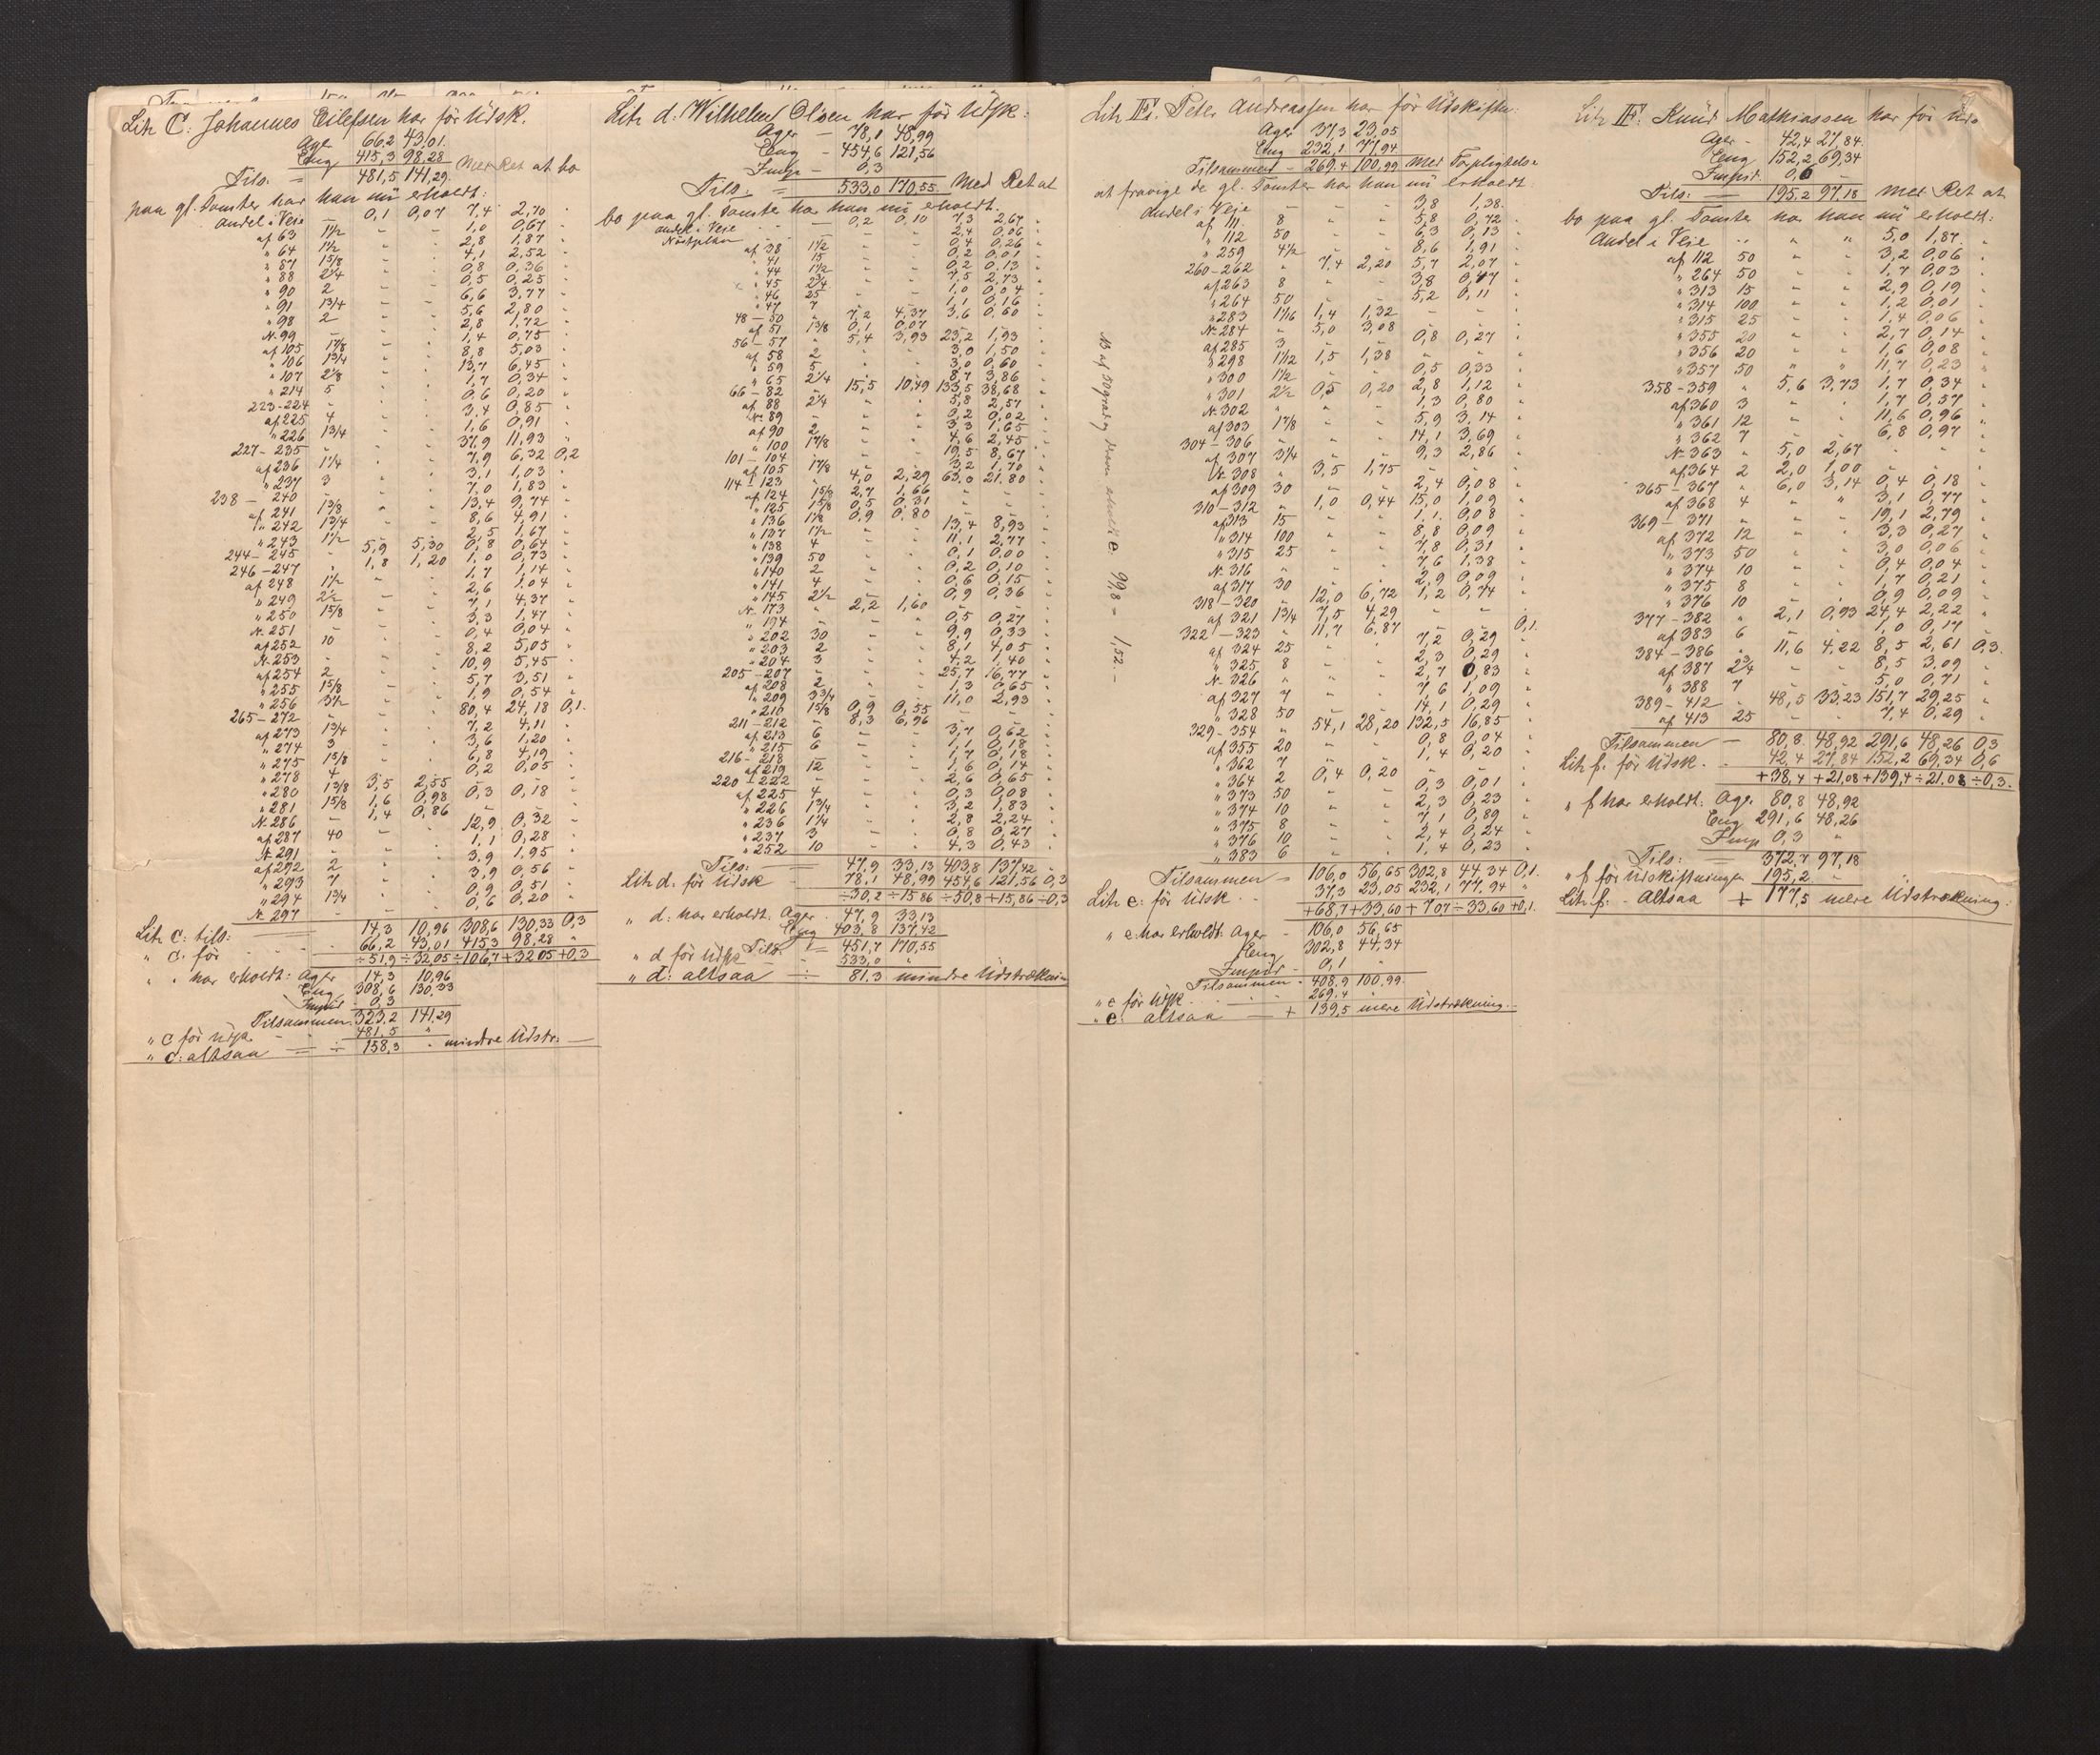 Litr C: Johannes Eilefsen har för Udsk.
Ager 66,2 43,01.
Eng 415,3 98,28
Tils: = 481,5 141,29. Med Ret at bo
paa gl. Tomter har han nü erholdt:
Andel i Veje 0,1 0,07 7,4 2,70
af 63 1½ " " 1,0 0,67
" 64 1½ " " 2,8 1,87
" 87 15/8 " " 4,1 2,52
" 88 2¼ " " 0,8 0,36
" 90 2 " " 0,5 0,25
" 91 13/4 " " 6,6 3,77
" 98 2 " " 5,6 2,80
N. 99 " " " 2,8 1,72
af 105 17/8 " " 1,4 0,75
" 106 13/4 " " 8,8 5,03
" 107 21/8 " " 13,7 6,45
" 214 5 " " 1,7 0,34
223-224 " " " 0,6 0,20
af 225 4 " " 3,4 0,85
" 226 13/4 " " 1,6 0,91
227-235 " " " 37,9 11,93
af 236 1¼ " " 7,9 6,32 0,2
" 237 3 " " 3,1 1,03
238 - 240 " " " 7,0 1,83
af 241 13/8 " " 13,4 9,74
" 242 13/4 " " 8,6 4,91
" 243 1½ " " 2,5 1,67
244-245 " 5,9 5,30 0,8 0,64
246-247 " 1,8 1,20 1,0 0,73
af 248 1½ " " 1,7 1,14
" 249 2½ " " 2,6 1,04
" 250 15/8 " " 7,1 4,37
N. 251 " " " 3,3 1,47
af 252 10 " " 0,4 0,04
N. 253 " " " 8,2 5,05
af 254 2 " " 10,9 5,45
" 255 15/8 " " 5,7 3,51
" 256 3½ " " 1,9 0,54
265-272 " " " 80,4 24,18 0,1.
af 273 13/4 " " 7,2 4,11
" 274 3 " " 3,6 1,20
" 275 15/8 " " 6,8 4,19
" 278 4 " " 0,2 0,05
" 280 13/8 3,5 2,55 " "
" 281 15/8 1,6 0,98 0,3 0,18
N. 286 " 1,4 0,86 " "
af 287 40 " " 12,9 0,32
N. 291 " " " 1,1 0,28
af 292 2 " " 3,9 1,95
" 293 7 " " 3,9 0,56
" 294 13/4 " " 0,9 0,51
N. 297 " " " 0,6 0,20
Litr C: tils: 14,3 10,96 308,6 130,33 0,3
" C. för 66,2 43,01 415,3 98,28 "
÷51,9 ÷32,05 ÷106,7 +32,05 +0,3
" " har erholdt: Ager 14,3 10,96
Eng 308,6 130,33
Impd 0,3
Tilsammen 323,2 141,29
" C för Udsk. 481,5 "
" C: altsaa = ÷ 158,3 " mindre Udstr.
Litr d: Wilhelm Olsen har för Udsk:
Ager - 78,1 48,99
Eng - 454,6 121,56
Impd - 0,3
Tils: = 533,0 170,55 Med Ret at
bo paa gl. Tomter har han nü erholdt.
Andel i Veie 0,2 0,10 7,3 2,67
Nöstplan " " 2,4 0,06
af 38 1½ " " 0,4 0,26
" 41 15 " " 0,2 0,01
" 44 1½ " " 0,2 0,13
" 45 2¾ " " 7,5 2,73
" 46 25 " " 1,0 0,04
" 47 7 " " 1,1 0,16
48-50 " 7,2 4,37 3,6 0,60
af 51 13/8 0,1 0,07 " "
56-57 " 5,4 3,93 23,2 1,93
af 58 2 " " 3,0 1,50
" 59 5 " " 3,0 0,60
" 65 2¼ " " 8,7 3,86
66-82 " 15,5 10,49 133,5 38,68
af 88 2¼ " " 5,8 2,57
N. 89 " " " 0,2 0,02
af 90 2 " " 3,3 1,65
" 100 17/8 " " 4,6 2,45
101-104 " " " 19,5 8,67
af 105 17/8 " " 3,2 1,70
114-123 " 4,0 2,29 63,0 21,80
af 124 15/8 2,7 1,66 " "
" 125 15/8 0,5 0,31 " "
" 136 11/8 0,9 0,80 " "
" 137 1½ " " 13,4 8,93
" 138 4 " " 11,1 2,77
" 139 50 " " 0,1 0,00
" 140 2 " " 0,2 0,10
" 141 4 " " 0,6 0,15
" 145 2½ " " 0,9 0,36
N. 173 " 2,2 1,60 " "
" 194 " " " 0,5 0,27
" 202 30 " " 9,9 0,33
" 203 2 " " 8,1 4,05
" 204 3 " " 4,2 1,40
205-207 " " " 25,7 16,77
af 208 2 " " 1,3 0,65
" 209 3¾ " " 11,0 2,93
" 210 15/8 0,9 0,55 " "
211-212 " 8,3 6,96 " "
af 213 6 " " 3,7 0,62
" 215 6 " " 1,1 0,18
216-218 " " " 1,7 0,18
af 219 12 " " 1,6 0,14
220-222 " " " 2,6 0,65
af 225 4 " " 0,3 0,08
" 226 13/4 " " 3,2 1,83
" 236 1¼ " " 2,8 2,24
" 237 3 " " 0,8 0,27
" 252 10 " " 4,3 0,43
Tils: = 47,9 33,13 403,8 137,42
Litr d. för Udsk 78,1 48,99 454,6 121,56 0,3
÷30,2 ÷15,86 ÷50,8 +15,86 ÷0,3
" d: har erholdt: Ager 47,9 33,13
Eng 403,8 137,42
Tils: 451,7 170,55
" d för Udsk 533,0 "
" d: altsaa - ÷ 81,3 mindre Udstrækning
Litr E: Peter Andreassen har för Udskiftn.
Ager 37,3 23,05
Eng 232,1 77,94
Tilsammen - 269,4 100,99 Med Forpligtelse
at fravige de gl. Tomter har han nü erholdt
Andel i Veje " " 3,8 1,38.
af 111 8 " " 5,8 0,72
" 112 50 " " 6,3 0,13
" 259 4½ " " 8,6 1,91
260-262 " 7,4 2,20 5,7 2,07
af 263 8 " " 3,8 0,47
" 264 50 " " 5,2 0,11
" 283 11/16 1,4 1,32 " "
N. 284 " 5,0 3,08 " "
af 285 3 " " 0,8 0,27
" 298 11/12 1,5 1,38 " "
" 300 1½ " " 0,5 0,33
" 301 2½ 0,5 0,20 2,8 1,12
N. 302 " " " 1,3 0,80
af 303 17/8 " " 5,9 3,14
304-306 " " " 14,1 3,69
af 307 3¼ " " 9,3 2,86
N. 308 " 3,5 1,75 " "
af 309 30 " " 2,4 0,08
310-312 " 1,0 0,44 15,0 1,09
af 313 15 " " 1,1 0,08
" 314 100 " " 8,8 0,09
" 315 25 " " 7,8 0,31
N. 316 " " " 7,6 1,38
af 317 30 " " 2,9 0,09
318-320 " 12,0 6,72 1,2 0,74
af 321 13/4 7,5 4,29 " "
322-323 " 11,7 6,87 " " 0,1.
af 324 25 " " 7,2 0,29
" 325 8 " " 2,3 0,29
N. 326 " " " 2,7 0,83
af 327 7 " " 7,6 1,09
" 328 50 " " 14,1 0,29
329-354 " 54,1 28,20 132,5 16,85
af 355 20 " " 0,8 0,04
" 362 7 " " 1,4 0,20
" 364 2 0,4 0,20 " "
" 373 50 " " 0,3 0,01
" 374 10 " " 2,3 0,23
" 375 8 " " 7,1 0,89
" 376 10 " " 2,4 0,24
" 383 6 " " 1,4 0,23
Tilsammen = 106,0 56,65 302,8 44,34 0,1.
Litr e: för Udsk. 37,3 23,05 232,1 77,94 "
+68,7 +33,60 +70,7 ÷33,60 +0,1.
" e: har erholdt: Ager - 106,0 56,65
Eng 302,8 44,34
Impd - 0,1 "
Tilsammen - 408,9 100,99.
" e för Udsk. 269,4 "
" e: altsaa - + 139,5 mere Udstrækning.
99,8 = 1,52.-
Litr F: Knüd Mathiassen har för Uds
Ager - 42,4 27,84.
Eng 152,2 69,34
Impd. 0,6 -
Tils: = 195,2 97,18 Med Ret at
bo paa gl. Tomter har han nü erholdt:
Andel i Veie " " 5,0 1,87.
af 112 50 " " 3,2 0,06
" 264 50 " " 1,7 0,03
" 313 15 " " 2,9 0,19
" 314 100 " " 1,2 0,01
" 315 25 " " 1,4 0,06
" 355 20 " " 2,7 0,14
" 356 20 " " 1,6 0,08
" 357 50 " " 11,7 0,23
358-359 " 5,6 3,73 1,7 0,34
af 360 3 " " 1,7 0,57
" 361 12 " " 11,6 0,96
" 362 7 " " 6,8 0,97
N. 363 " 5,0 2,67 " "
af 364 2 2,0 1,00 " "
365-367 " 6,0 3,14 0,4 0,18
af 368 4 " " 3,1 0,77
369-371 " " " 19,1 2,79
af 372 12 " " 3,3 0,27
" 373 50 " " 3,0 0,06
" 374 10 " " 0,4 0,04
" 375 8 " " 1,7 0,21
" 376 10 " " 0,9 0,09
377-382 " 2,1 0,93 24,4 2,22
af 383 6 " " 1,0 0,17
384-386 " 11,6 4,22 8,5 2,61 0,3.
af 387 2¾ " " 8,5 3,09
" 388 7 " " 5,0 0,71
389-412 " 48,5 33,23 151,7 29,25
af 413 25 " " 7,4 0,29
Tilsammen - 80,8 48,92 291,6 48,26 0,3
Litr f. för Udsk. 42,4 27,84 152,2 69,34 0,6
+38,4 +21,08 +139,4 ÷21,08 ÷0,3.
" f har erholdt: Ager 80,8 48,92
Eng 291,6 48,26
Impd 0,3 "
Tils: = 372,7 97,18
" f för Udskiftningen 195,2 "
Litr f: - Altsaa + 177,5 mere Udstrækning.